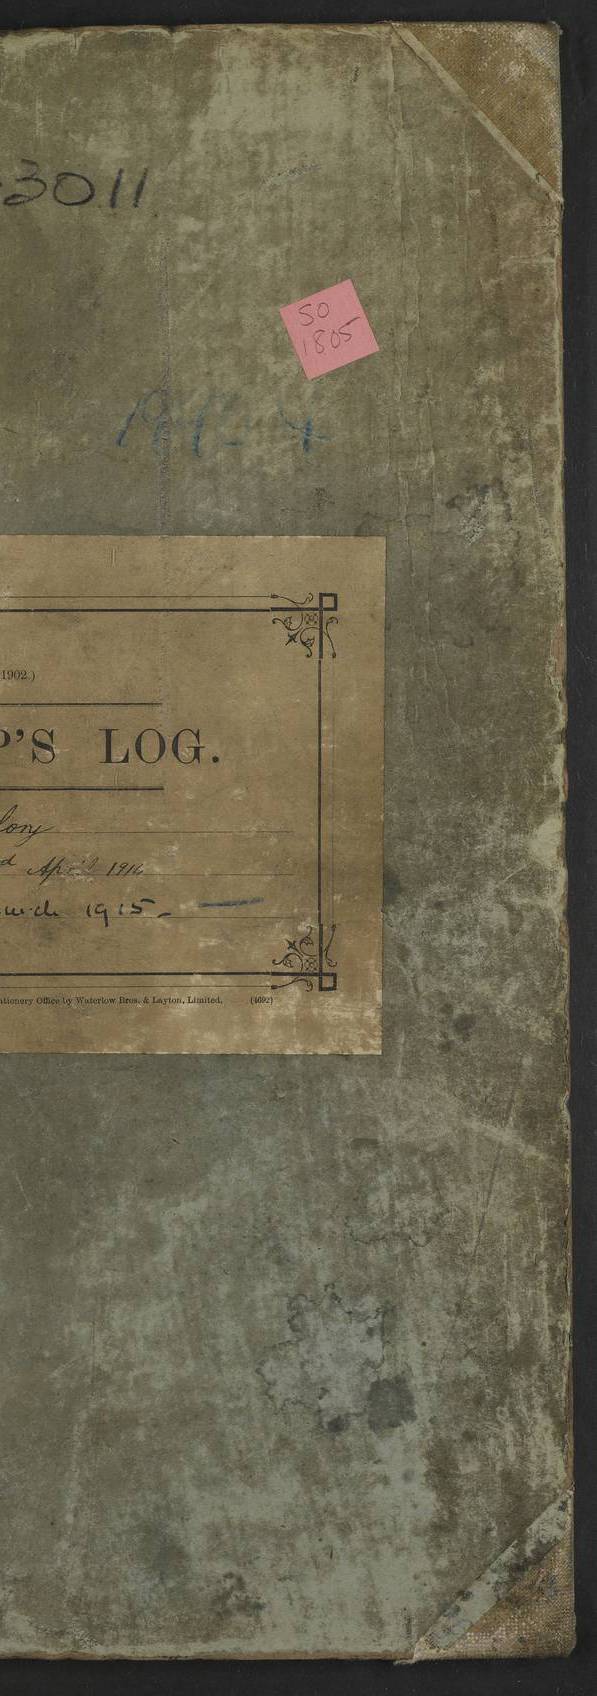 3011
SO
1805
1902.)
P'S LOG.
lony
d April 1914
1915.
ationery Office by Waterlow Bros. & Layton, Limited. (4692)